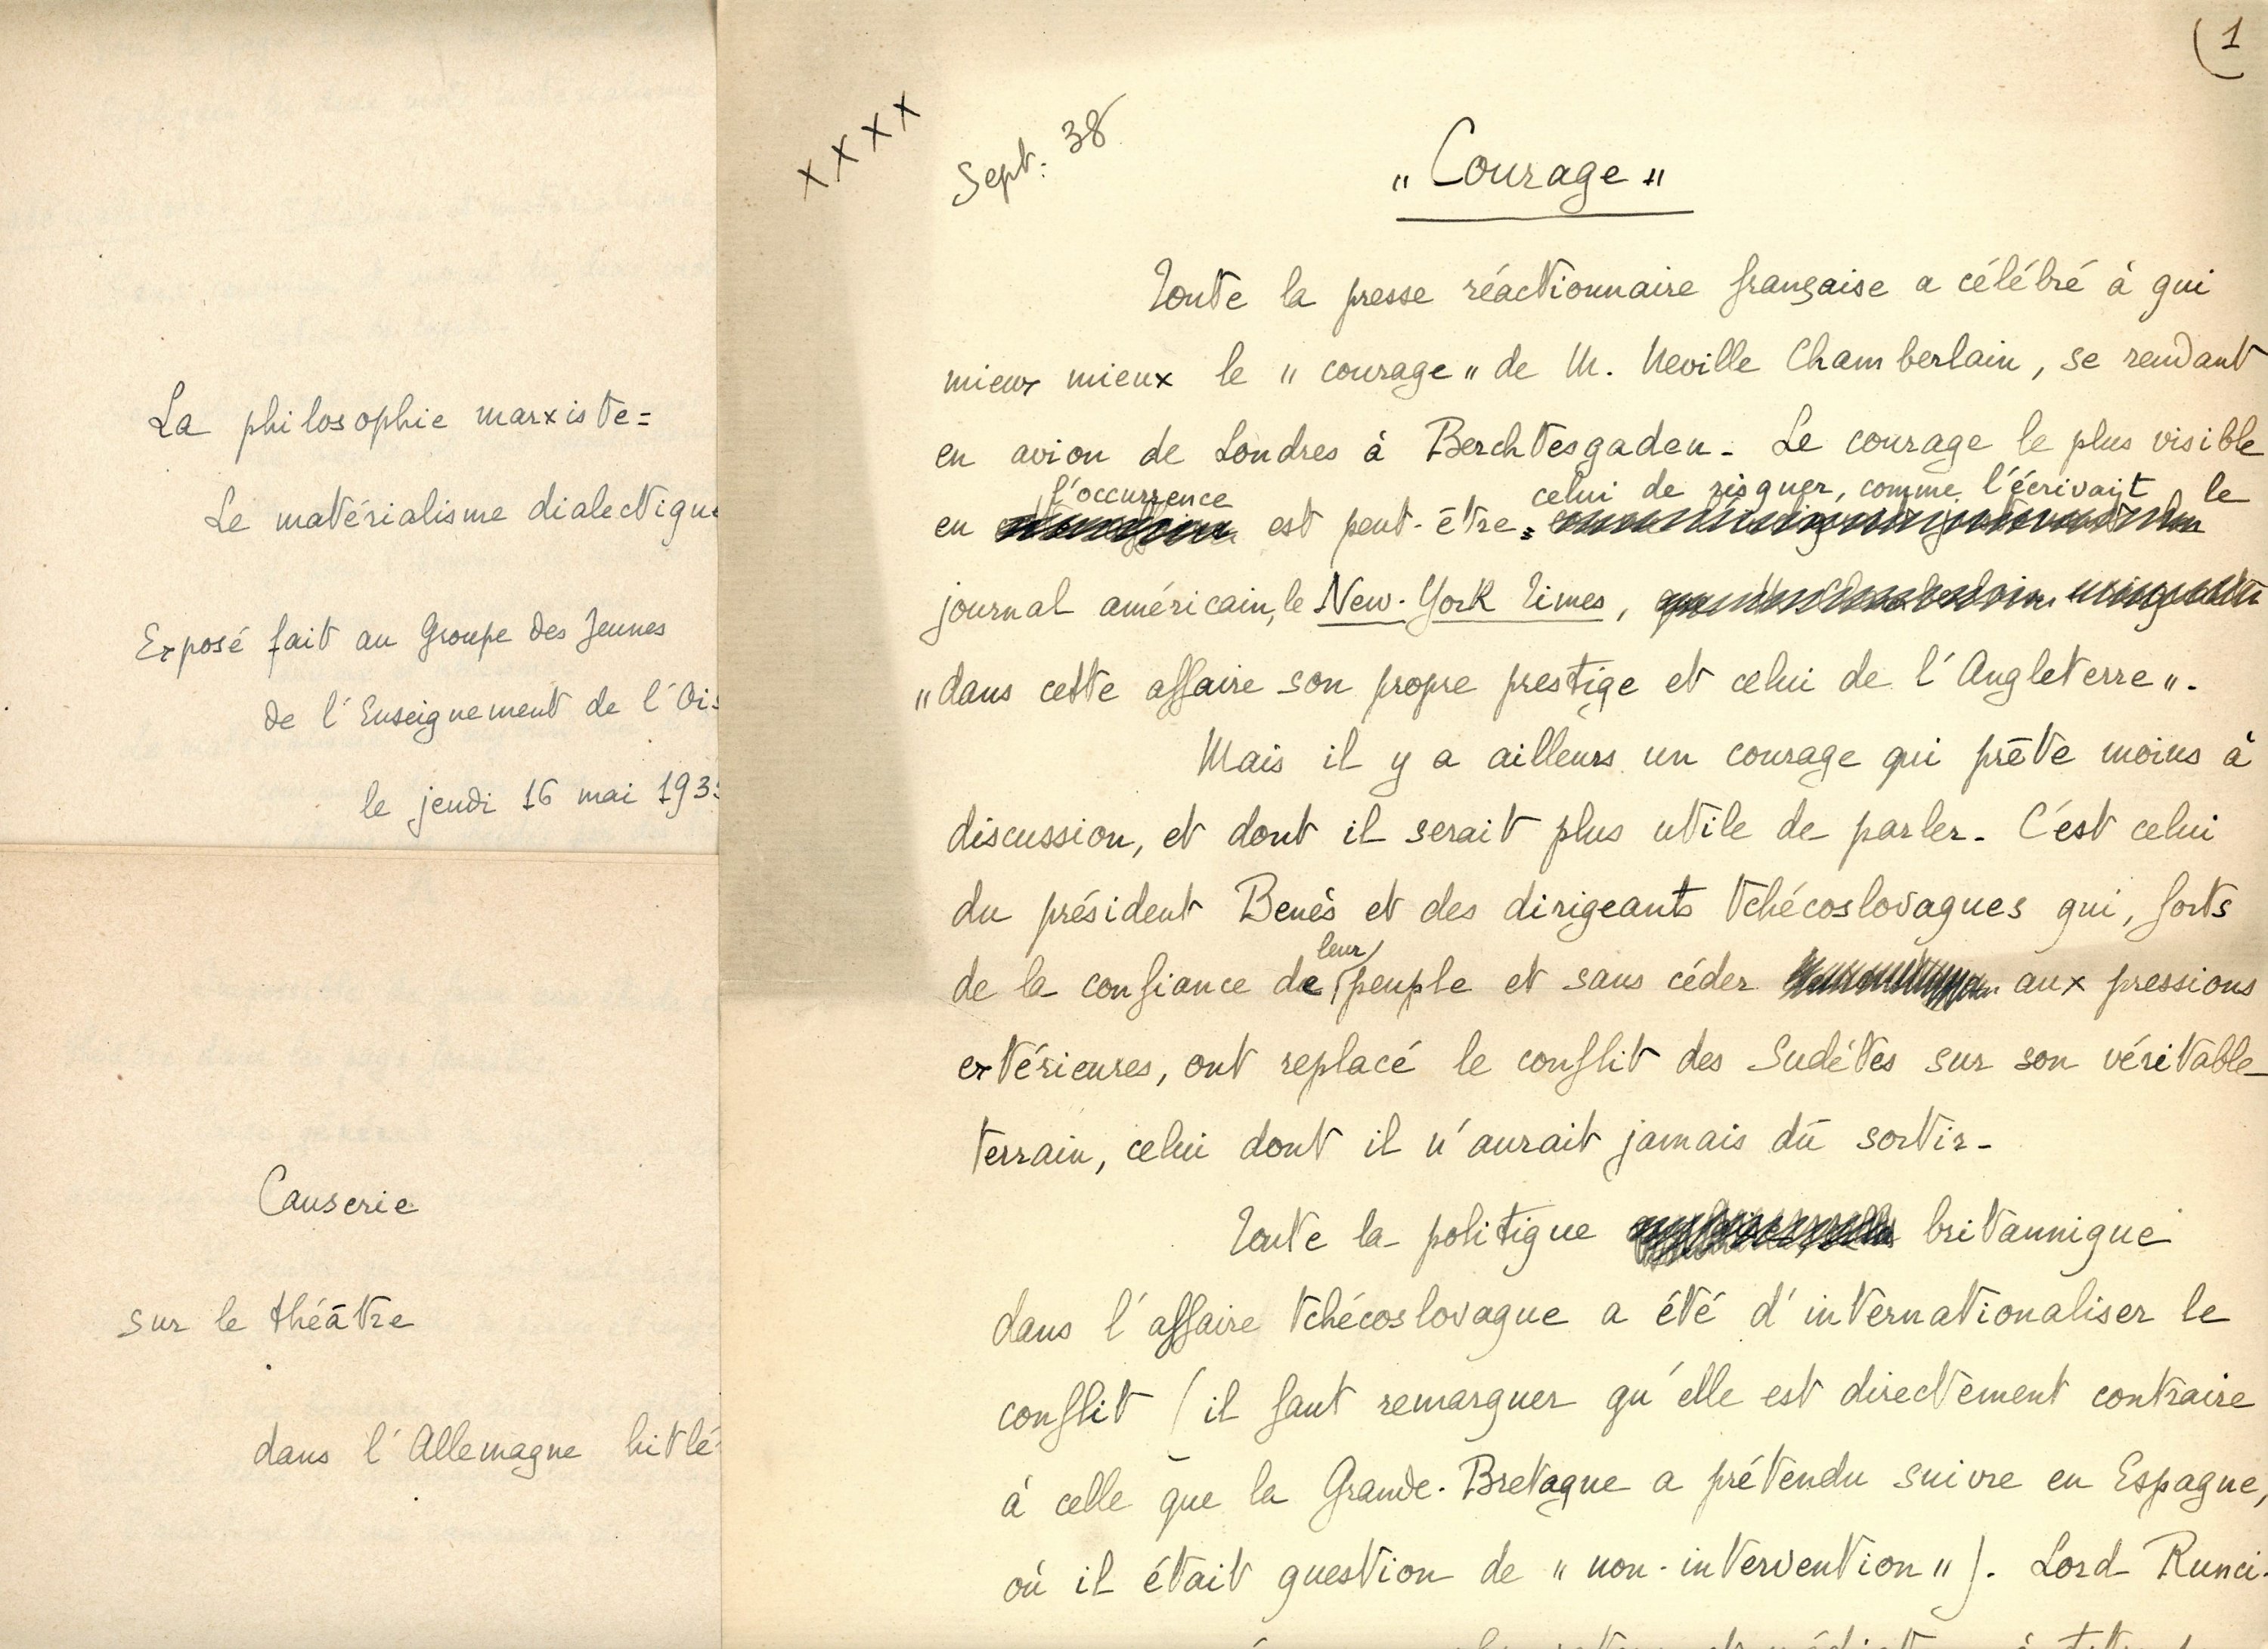 La philosophie marxiste =
Le matérialisme dialectique
Exposé fait au Groupe des Jeunes
de l'Enseignement de l'Ois
le jeudi 16 mai 193
Causerie
sur le théâtre
dans l'Allemagne hitlé
(1
x x x x
Sept. 38
" Courage "
Toute la presse réactionnaire française a célébré à qui
mieux mieux le " courage " de M. Neville Chamberlain, se rendant
en avion de Londres à Berchtesgaden. Le courage le plus visible
en l'occurrence est peut-être celui de risquer, comme l'écrivait le
journal américain, le New-York Times,
" dans cette affaire son propre prestige et celui de l'Angleterre ".
Mais il y a ailleurs un courage qui prête moins à
discussion, et dont il serait plus utile de parler. C'est celui
du président Benès et des dirigeants tchécoslovaques qui, forts
de la confiance de leur peuple et sans céder aux pressions
extérieures, ont replacé le conflit des Sudètes sur son véritable
terrain, celui dont il n'aurait jamais dû sortir.
Toute la politique britannique
dans l'affaire tchécoslovaque a été d'internationaliser le
conflit (il faut remarquer qu'elle est directement contraire
à celle que la Grande-Bretagne a prétendu suivre en Espagne,
où il était question de " non-intervention "). Lord Runci-